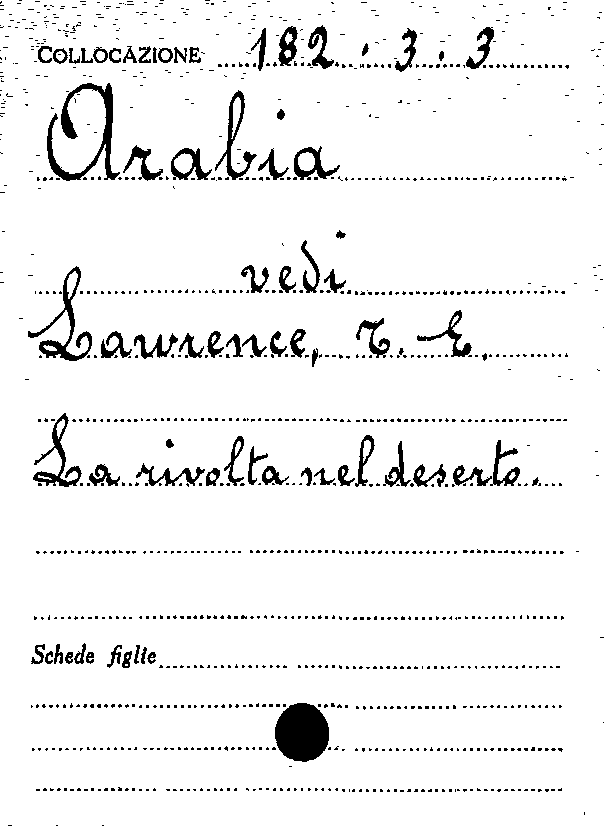 COLLOCAZIONE 182.3.3
Arabia
vedi
Lawrence, T. E.
La rivolta nel deserto.
Schede figlie